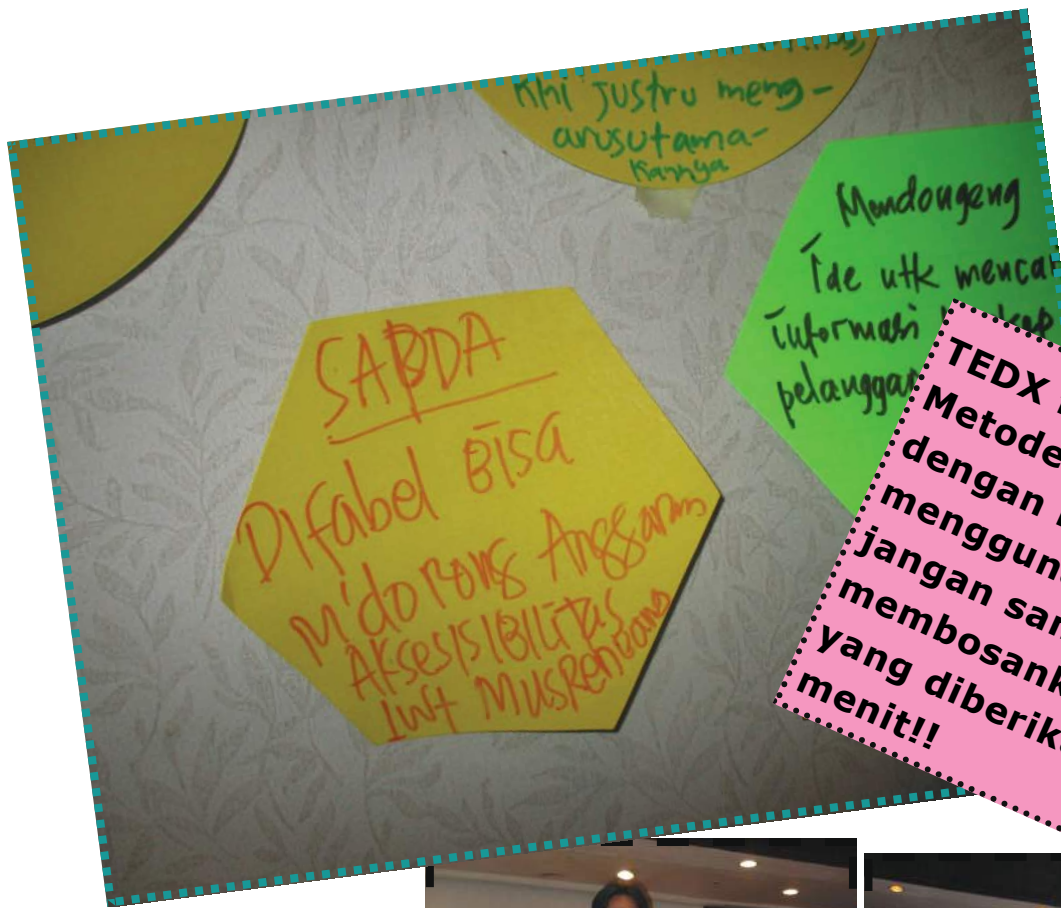 Khi justru meng-
arusutama-
kannya
Mendongeng
Ide utk mencar
informasi
pelanggar
SABDA
Difabel Bisa
M'dorong Anggaran
Aksesisibilitas
lwt Musrenbang
TEDX
Metode
dengan
menggun
jangan sam
membosank
yang diberik
menit!!